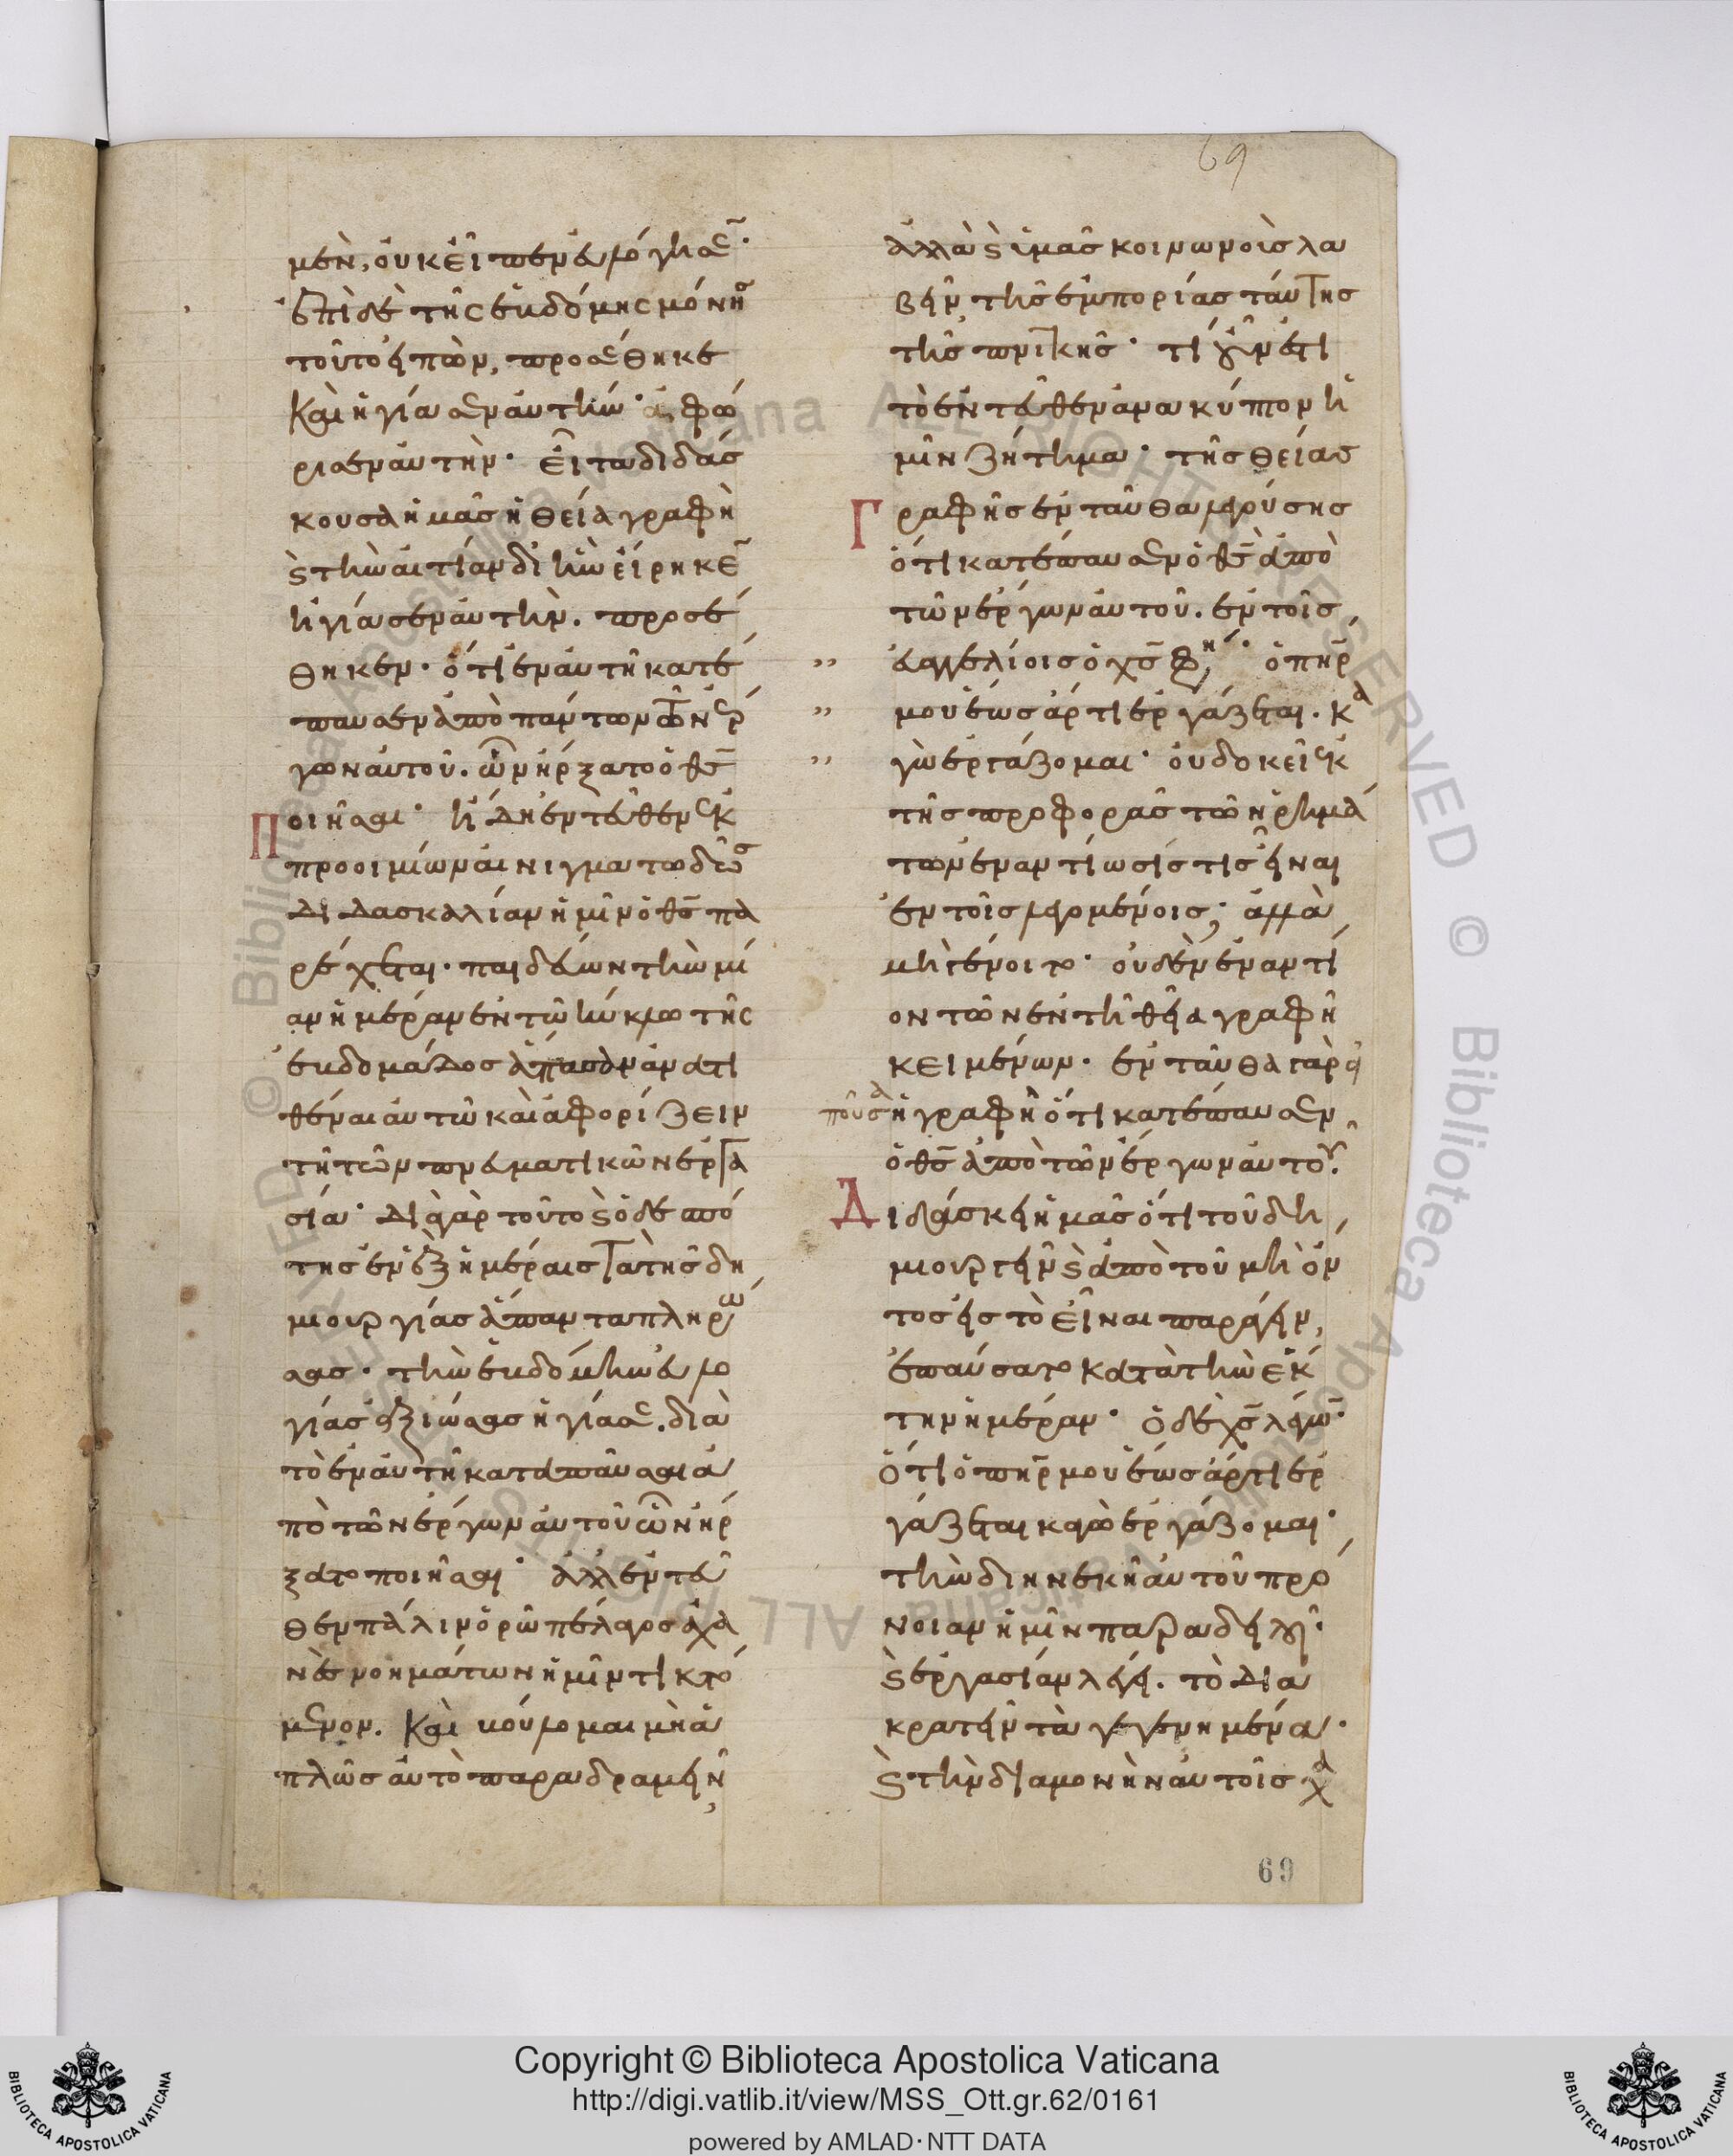 69
μὲν, οὐκ εἶπεν εὐλόγησε·
ἐπὶ δὲ τῆς ἑβδόμης μόνης
τοῦτο εἰπὼν, προσέθηκε
καὶ ἡγίασεν αὐτήν· ἀφώ
ρισεν αὐτήν· εἶτα διδάσ
κουσα ἡμᾶς ἡ θεία γραφὴ
ϗ τὴν αἰτίαν δι ἣν εἴρηκε
ἡγίασεν αὐτὴν. προσέ
θηκεν· ὅτι ἐν αὐτῆ κατέ
παυσεν ἀπὸ πάντων τῶν ἔρ
γων αὐτοῦ. ὧν ἤρξατο ὁ θς
ποιῆσαι· ἤδη ἐντεῦθεν ἐκ
προοιμίων αἰνιγματωδῶς
διδασκαλίαν ἡμῖν ὁ θς πα
ρέχεται· παιδεύων τὴν μί
αν ἡμέραν ἐν τῶ κύκλω τῆς
ἑβδομάδος ἅπασαν ἀνατι
θέναι αὐτῶ καὶ ἀφορίζειν
τῆ τῶν πνευματικῶν ἐργα
σία· διὰ γὰρ τοῦτο ϗ ὁ δεσπό
της ἐν ἓξ ἡμέραις τὰ τῆς δη
μιουργίας ἅπαντα πληρώ
σας· τὴν ἑβδόμην εὐλο
γίας ἀξιώσας ἡγίασε. διὰ
τὸ ἐν αὐτῆ καταπαῦσαι ἀ
πὸ τῶν ἔργων αὐτοῦ ὧν ἤρ
ξατο ποιῆσαι· ἀλλ ἐντεῦ
θεν πάλιν ὁρῶ πέλαγος ἀχα
νὲς νοημάτων ἡμῖν τικτό
μενον. καὶ βούλομαι μὴ ἁ
πλῶς αὐτὸ παραδραμεῖν,
ἀλλὰ ϗ ὑμᾶς κοινωνοὺς λα
βεῖν τῆς ἐμπορίας ταύτης
τῆς πνικῆς· τί γάρ ἐστι
τὸ ἐντεῦθεν ἀνακύπτον ἡ
μῖν ζήτημα· τῆς θείας
γραφῆς ἐνταῦθα λεγούσης
ὅτι κατέπαυσεν ὁ θς ἀπὸ
τῶν ἔργων αὐτοῦ. ἐν τοῖς
„ εὐαγγελίοις ὁ χς φησί· ὁ πηρ
„ μου ἕως ἄρτι ἐργάζεται. κα
„ γὼ ἐργάζομαι· οὐ δοκεῖ ἐκ
τῆς προφορᾶς τῶν ῥημά
των ἐναντίωσίς τις εἶναι
ἐν τοῖς λεγομένοις; ἀλλὰ
μὴ γένοιτο· οὐδὲν ἐναντί
ον τῶν ἐν τῆ θεία γραφῆ
κειμένων· ἐνταῦθα γὰρ εἰ
ποῦσα ἡ γραφὴ ὅτι κατέπαυσεν
ὁ θς ἀπὸ τῶν ἔργων αὐτοῦ·
διδάσκει ἡμᾶς ὅτι τοῦ δη
μιουργεῖν ϗ ἀπὸ τοῦ μὴ ὄν
τος εἰς τὸ εἶναι παράγειν,
ἐπαύσατο κατὰ τὴν ἕκ
την ἡμέραν· ὁ δὲ χς λέγων·
ὅτι ὁ πηρ μου ἕως ἄρτι ἐρ
γάζεται κἀγὼ ἐργάζομαι·
τὴν διηνεκῆ αὐτοῦ πρό
νοιαν ἡμῖν παραδηλοῖ·
ϗ ἐργασίαν λέγει. τὸ δια
κρατεῖν τὰ γεγενημένα·
ϗ τὴν διαμονὴν αὐτοῖς χα
69
Copyright © Biblioteca Apostolica Vaticana
http://digi.vatlib.it/view/MSS_Ott.gr.62/0161
powered by AMLAD·NTT DATA
BIBLIOTECA APOSTOLICA VATICANA
BIBLIOTECA APOSTOLICA VATICANA